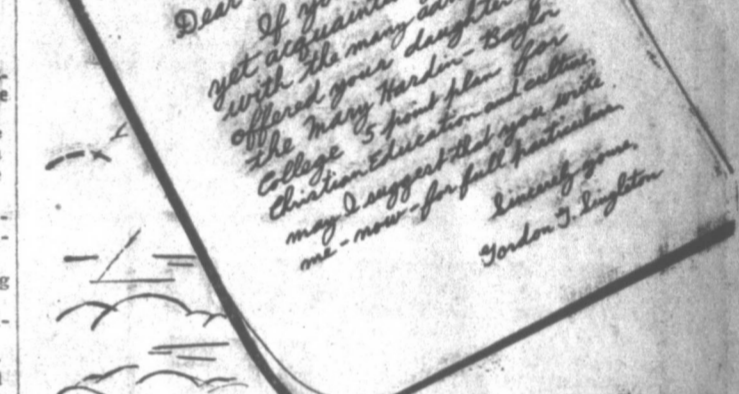 Dear
If yo
yet acquainte
with the many adv
offered your daughter
the Mary Hardin-Baylor
College 5 point plan for
Christian Education and culture,
may I suggest that you write
me - now - for full particulars.
Sincerely yours,
Gordon G. Singleton